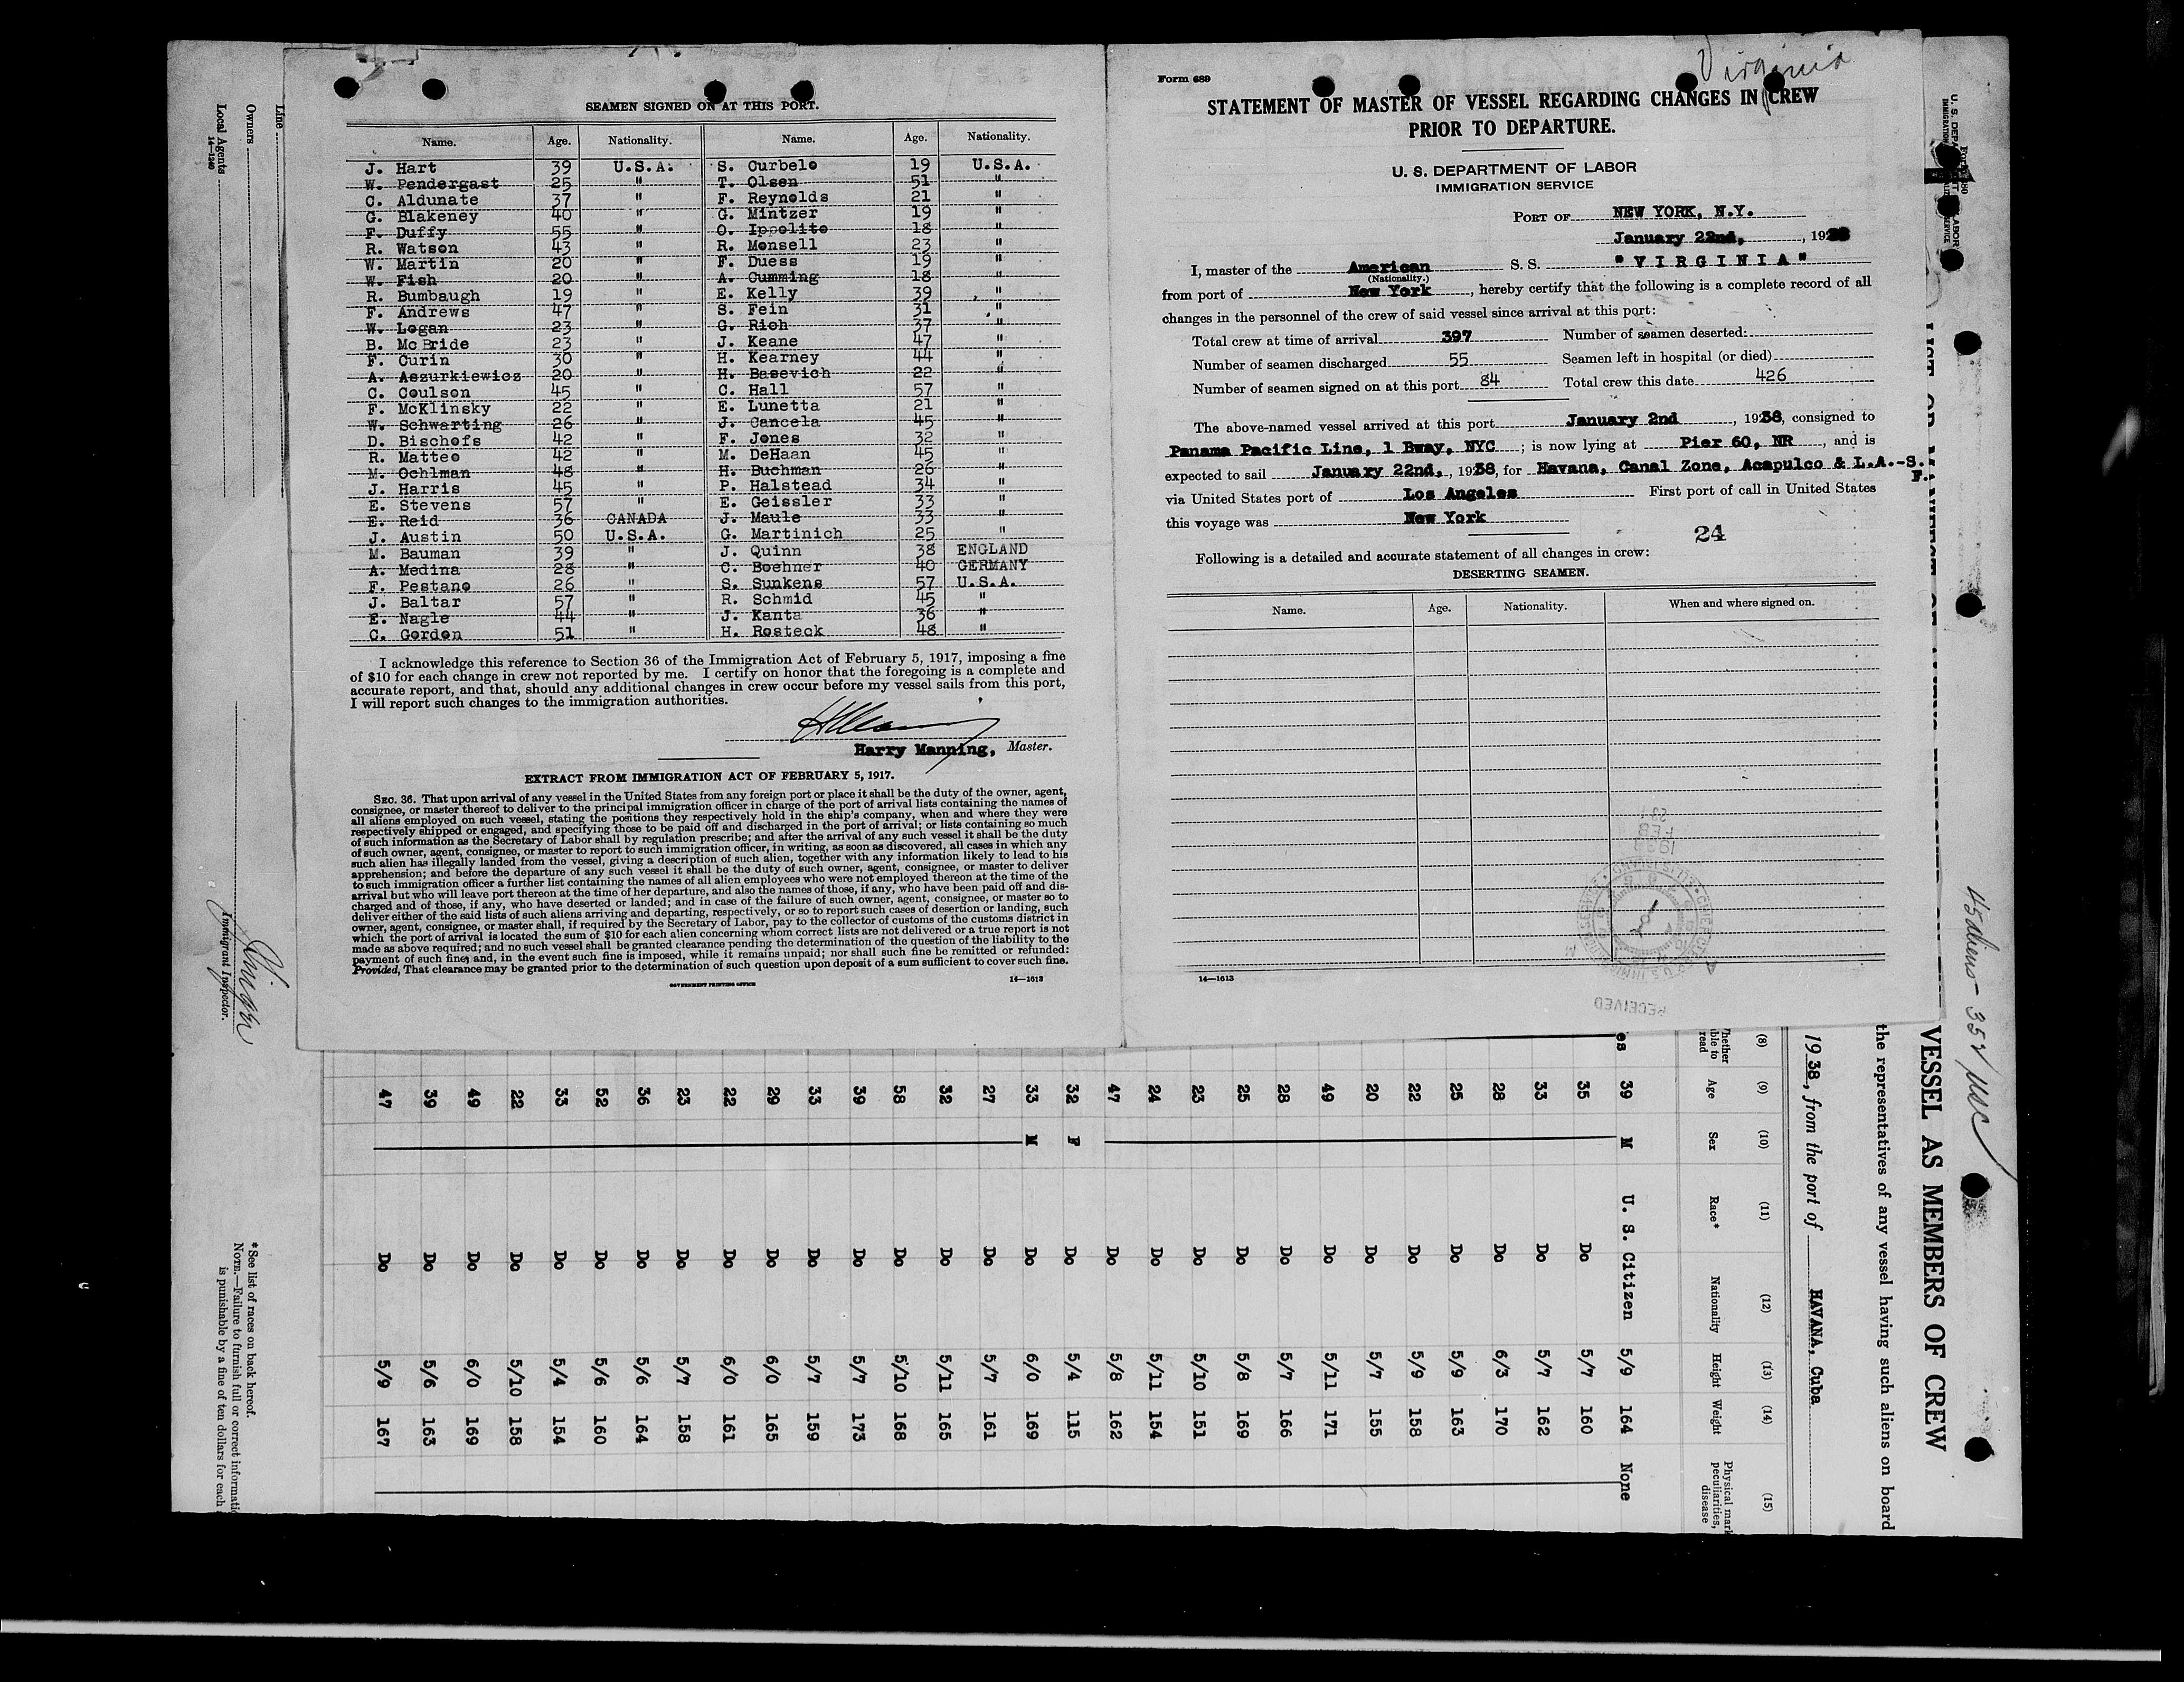 SEAMEN SIGNED ON AT THIS PORT.
Name. Age. Nationality. Name. Age. Nationality.
J. Hart 39 U.S.A. S. Curbelo 19 U.S.A.
W. Pendergast 25 " T. Olsen 51 "
C. Aldunate 37 " F. Reynolds 21 "
G. Blakeney 40 " G. Mintzer 19 "
F. Duffy 55 " O. Ippolito 18 "
R. Watson 43 " R. Monsell 23 "
W. Martin 20 " F. Duess 19 "
W. Fish 20 " A. Cumming 18 "
R. Bumbaugh 19 " E. Kelly 39 "
F. Andrews 47 " S. Fein 31 "
W. Logan 23 " G. Rich 37 "
B. McBride 23 " J. Keane 47 "
F. Curin 30 " H. Kearney 44 "
A. Aszurkiewicz 20 " H. Basevich 22 "
C. Coulson 45 " C. Hall 57 "
F. McKlinsky 22 " E. Lunetta 21 "
W. Schwarting 26 " J. Cancela 45 "
D. Bischofs 42 " F. Jones 32 "
R. Matteo 42 " M. DeHaan 45 "
M. Ochlman 48 " H. Buchman 26 "
J. Harris 45 " P. Halstead 34 "
E. Stevens 57 " E. Geissler 33 "
E. Reid 36 CANADA J. Maule 33 "
J. Austin 50 U.S.A. G. Martinich 25 "
M. Bauman 39 " J. Quinn 38 ENGLAND
A. Medina 28 " C. Boehner 40 GERMANY
F. Pestano 26 " S. Sunkens 57 U.S.A.
J. Baltar 57 " R. Schmid 45 "
E. Nagle 44 " J. Kanta 36 "
C. Gordon 51 " H. Rosteck 48 "
I acknowledge this reference to Section 36 of the Immigration Act of February 5, 1917, imposing a fine
of $10 for each change in crew not reported by me. I certify on honor that the foregoing is a complete and
accurate report, and that, should any additional changes in crew occur before my vessel sails from this port,
I will report such changes to the immigration authorities.
Harry Manning, Master.
EXTRACT FROM IMMIGRATION ACT OF FEBRUARY 5, 1917.
SEC. 36. That upon arrival of any vessel in the United States from any foreign port or place it shall be the duty of the owner, agent,
consignee, or master thereof to deliver to the principal immigration officer in charge of the port of arrival lists containing the names of
all aliens employed on such vessel, stating the positions they respectively hold in the ship's company, when and where they were
respectively shipped or engaged, and specifying those to be paid off and discharged in the port of arrival; or lists containing so much
of such information as the Secretary of Labor shall by regulation prescribe; and after the arrival of any such vessel it shall be the duty
of such owner, agent, consignee, or master to report to such immigration officer, in writing, as soon as discovered, all cases in which any
such alien has illegally landed from the vessel, giving a description of such alien, together with any information likely to lead to his
apprehension; and before the departure of any such vessel it shall be the duty of such owner, agent, consignee, or master to deliver
to such immigration officer a further list containing the names of all alien employees who were not employed thereon at the time of the
arrival but who will leave port thereon at the time of her departure, and also the names of those, if any, who have been paid off and dis-
charged and of those, if any, who have deserted or landed; and in case of the failure of such owner, agent, consignee, or master so to
deliver either of the said lists of such aliens arriving and departing, respectively, or so to report such cases of desertion or landing, such
owner, agent, consignee, or master shall, if required by the Secretary of Labor, pay to the collector of customs of the customs district in
which the port of arrival is located the sum of $10 for each alien concerning whom correct lists are not delivered or a true report is not
made as above required; and no such vessel shall be granted clearance pending the determination of the question of the liability to the
payment of such fine; and, in the event such fine is imposed, while it remains unpaid; nor shall such fine be remitted or refunded:
Provided, That clearance may be granted prior to the determination of such question upon deposit of a sum sufficient to cover such fine.
GOVERNMENT PRINTING OFFICE 14—1613
Virginia
Form 689
STATEMENT OF MASTER OF VESSEL REGARDING CHANGES IN CREW
PRIOR TO DEPARTURE.
U. S. DEPARTMENT OF LABOR
IMMIGRATION SERVICE
PORT OF NEW YORK, N.Y.
January 22nd, , 1938
I, master of the American S. S. "VIRGINIA"
(Nationality.)
from port of New York, hereby certify that the following is a complete record of all
changes in the personnel of the crew of said vessel since arrival at this port:
Total crew at time of arrival 397 Number of seamen deserted:
Number of seamen discharged 55 Seamen left in hospital (or died)
Number of seamen signed on at this port 84 Total crew this date 426
The above-named vessel arrived at this port January 2nd , 1938, consigned to
Panama Pacific Line, 1 Bway, NYC ; is now lying at Pier 60, NR , and is
expected to sail January 22nd, , 1938, for Havana, Canal Zone, Acapulco & L.A.-S.
F.
via United States port of Los Angeles First port of call in United States
this voyage was New York
24
Following is a detailed and accurate statement of all changes in crew:
DESERTING SEAMEN.
Name. Age. Nationality. When and where signed on.
RECEIVED
14—1613
Line
Owners
Local Agents
14—1240
Immigrant Inspector.
* See list of races on back hereof.
NOTE.—Failure to furnish full or correct informati
is punishable by a fine of ten dollars for each
VESSEL AS MEMBERS OF CREW
the representatives of any vessel having such aliens on board
1938, from the port of HAVANA, Cuba
(8) (9) (10) (11) (12) (13) (14) (15)
Whether able to read Age Sex Race* Nationality Height Weight Physical mark peculiarities, disease
es 39 M U. S. Citizen 5/9 164 None
35 Do 5/7 160
33 Do 5/7 162
28 Do 6/3 170
25 Do 5/9 163
22 Do 5/9 158
20 Do 5/7 155
49 Do 5/11 171
28 Do 5/7 166
25 Do 5/8 169
23 Do 5/10 151
24 Do 5/11 154
47 Do 5/8 162
32 F Do 5/4 115
33 M Do 6/0 169
27 Do 5/7 161
32 Do 5/11 165
58 Do 5/10 168
39 Do 5/7 173
33 Do 5/7 159
29 Do 6/0 165
22 Do 6/0 161
23 Do 5/7 158
36 Do 5/6 164
52 Do 5/6 160
33 Do 5/4 154
22 Do 5/10 158
49 Do 6/0 169
39 Do 5/6 163
47 Do 5/9 167